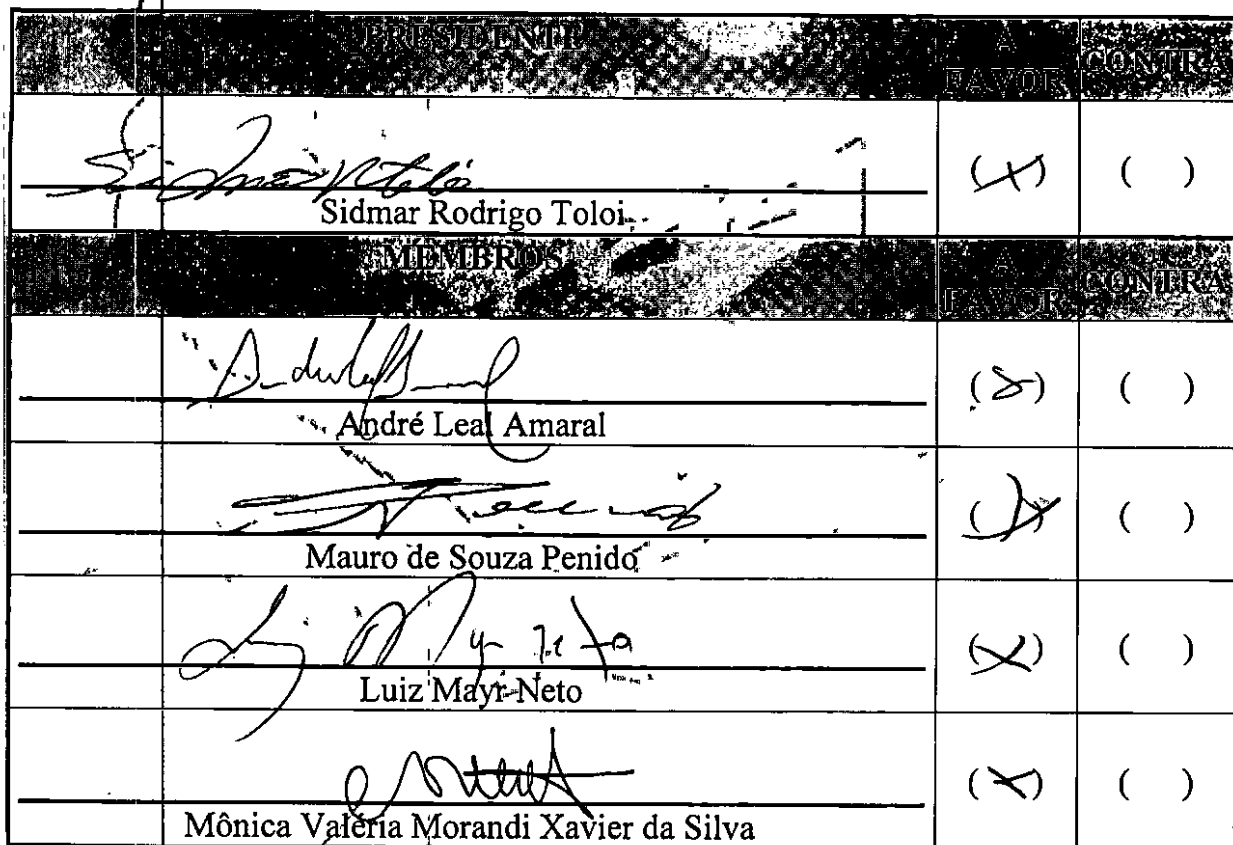 PRESIDENTE A FAVOR CONTRA
(X) ( )
Sidmar Rodrigo Toloi
MEMBROS A FAVOR CONTRA
(X) ( )
André Leal Amaral
(X) ( )
Mauro de Souza Penido
(X) ( )
Luiz Mayr Neto
(X) ( )
Mônica Valéria Morandi Xavier da Silva